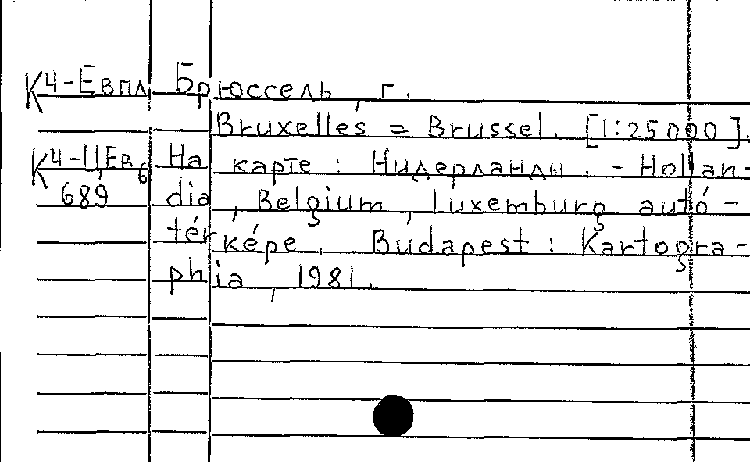 К4-Евпл Брюссель, г.
Bruxelles = Brussel. [1:25000].
К4-ЦЕв6 На карте: Нидерланды. - Hollan-
689 dia, Belgium, Luxemburg autó-
térképe. Budapest: Kartogra-
phia, 1981.